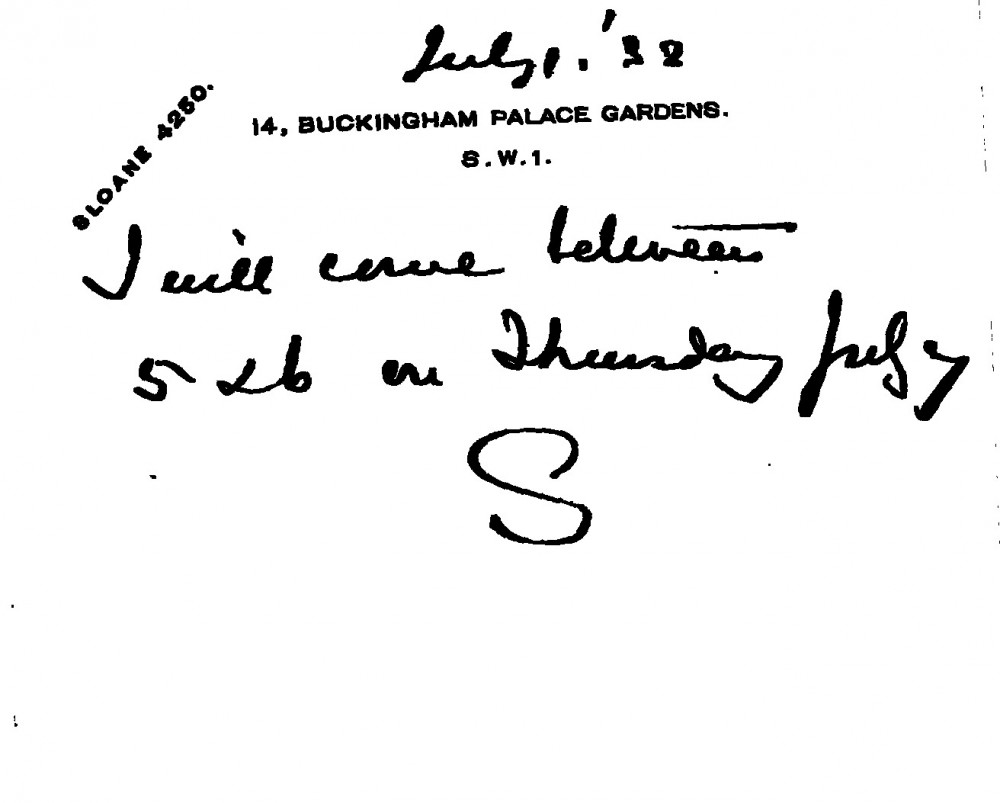 July 1. '32
SLOANE 4250.
14, BUCKINGHAM PALACE GARDENS.
S.W.1.
I will come between
5 & 6 on Thursday July 7
S